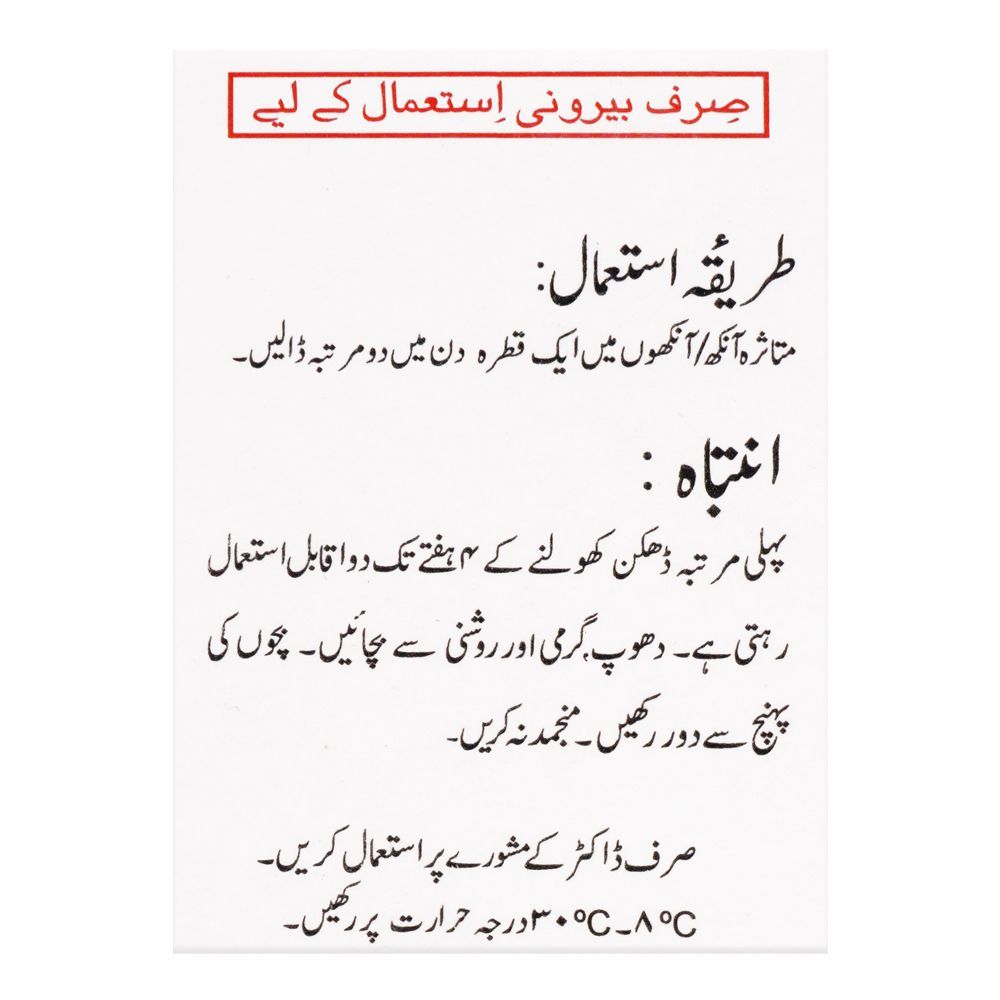 صِرف بیرونی اِستعمال کے لیے
طریقۂ استعمال:
متاثرہ آنکھ/آنکھوں میں ایک قطرہ دن میں دو مرتبہ ڈالیں۔
انتباہ :
پہلی مرتبہ ڈھکن کھولنے کے ۴ ہفتے تک دوا قابل استعمال
رہتی ہے۔ دھوپ، گرمی اور روشنی سے بچائیں۔ بچوں کی
پہنچ سے دور رکھیں۔ منجمد نہ کریں۔
صرف ڈاکٹر کے مشورے پر استعمال کریں۔
۸°C۔۳۰°C درجہ حرارت پر رکھیں۔